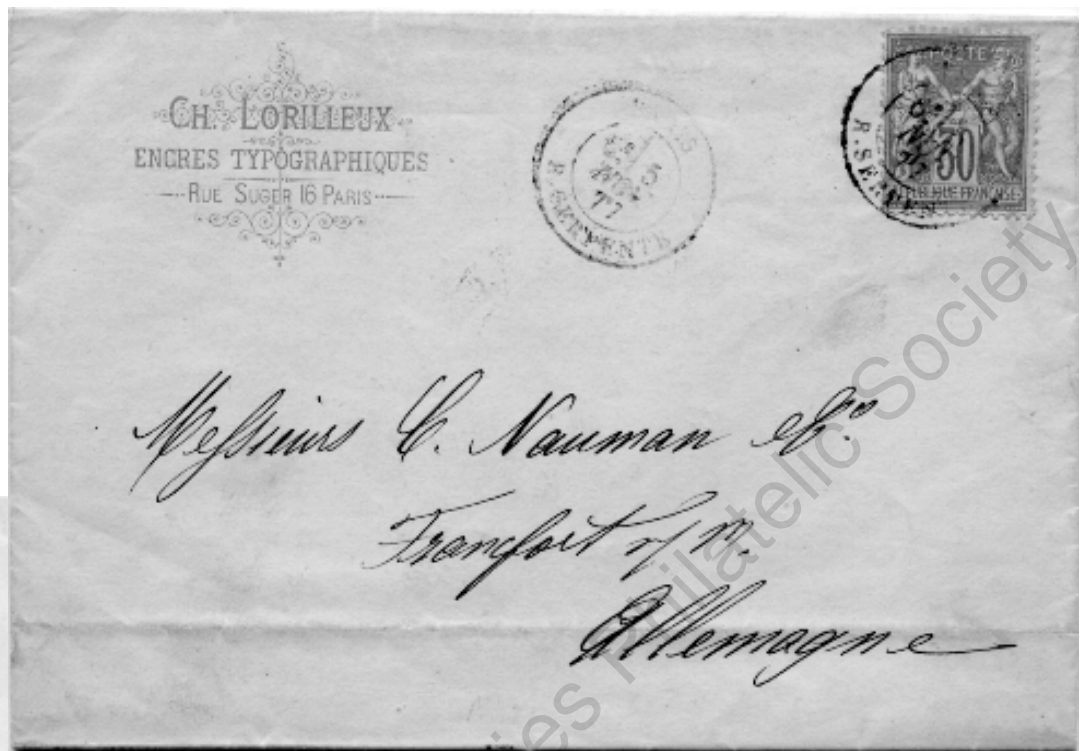 CH. LORILLEUX
ENCRES TYPOGRAPHIQUES
RUE SUGER 16 PARIS
NOV
77
R. SERPENTE
POSTE
30
REPUBLIQUE FRANCAISE
R. SERPEN
Messieurs C. Nauman & Cº
Francfort s/m.
Allemagne
Philatelic Society